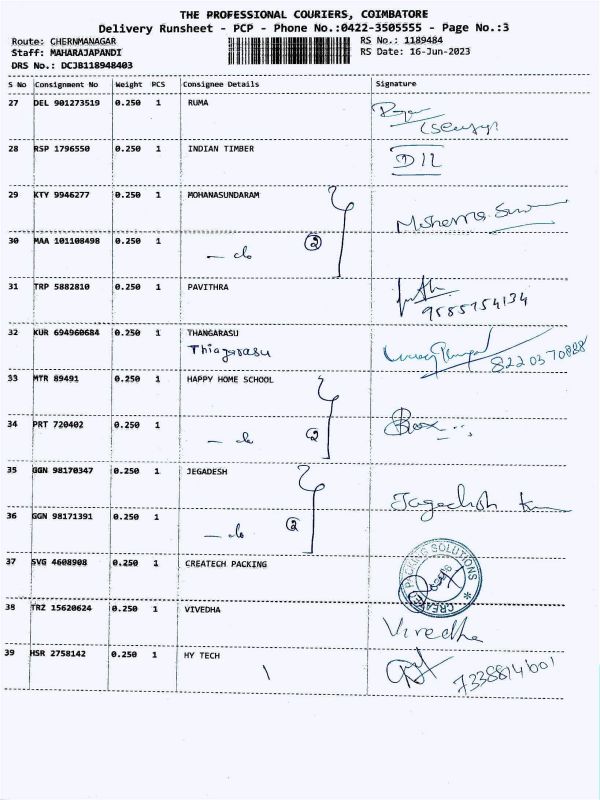 THE PROFESSIONAL COURIERS, COIMBATORE
Delivery Runsheet - PCP - Phone No.:0422-3505555 - Page No.:3
Route: CHERNMANAGAR RS No.: 1189484
Staff: MAHARAJAPANDI RS Date: 16-Jun-2023
DRS No.: DCJB118948403
S No Consignment No Weight PCS Consignee Details Signature
27 DEL 901273519 0.250 1 RUMA
28 RSP 1796550 0.250 1 INDIAN TIMBER
29 KTY 9946277 0.250 1 MOHANASUNDARAM
30 MAA 101108498 0.250 1 — do 2
31 TRP 5882810 0.250 1 PAVITHRA
9585754134
32 KUR 694960684 0.250 1 THANGARASU
Thiagarasu 8220370828
33 MTR 89491 0.250 1 HAPPY HOME SCHOOL
34 PRT 720402 0.250 1 — do 2
35 GGN 98170347 0.250 1 JEGADESH
36 GGN 98171391 0.250 1 — do 2
37 SVG 4608908 0.250 1 CREATECH PACKING PACKING SOLUTIONS
38 TRZ 15620624 0.250 1 VIVEDHA Vivedha
39 HSR 2758142 0.250 1 HY TECH 7338814601